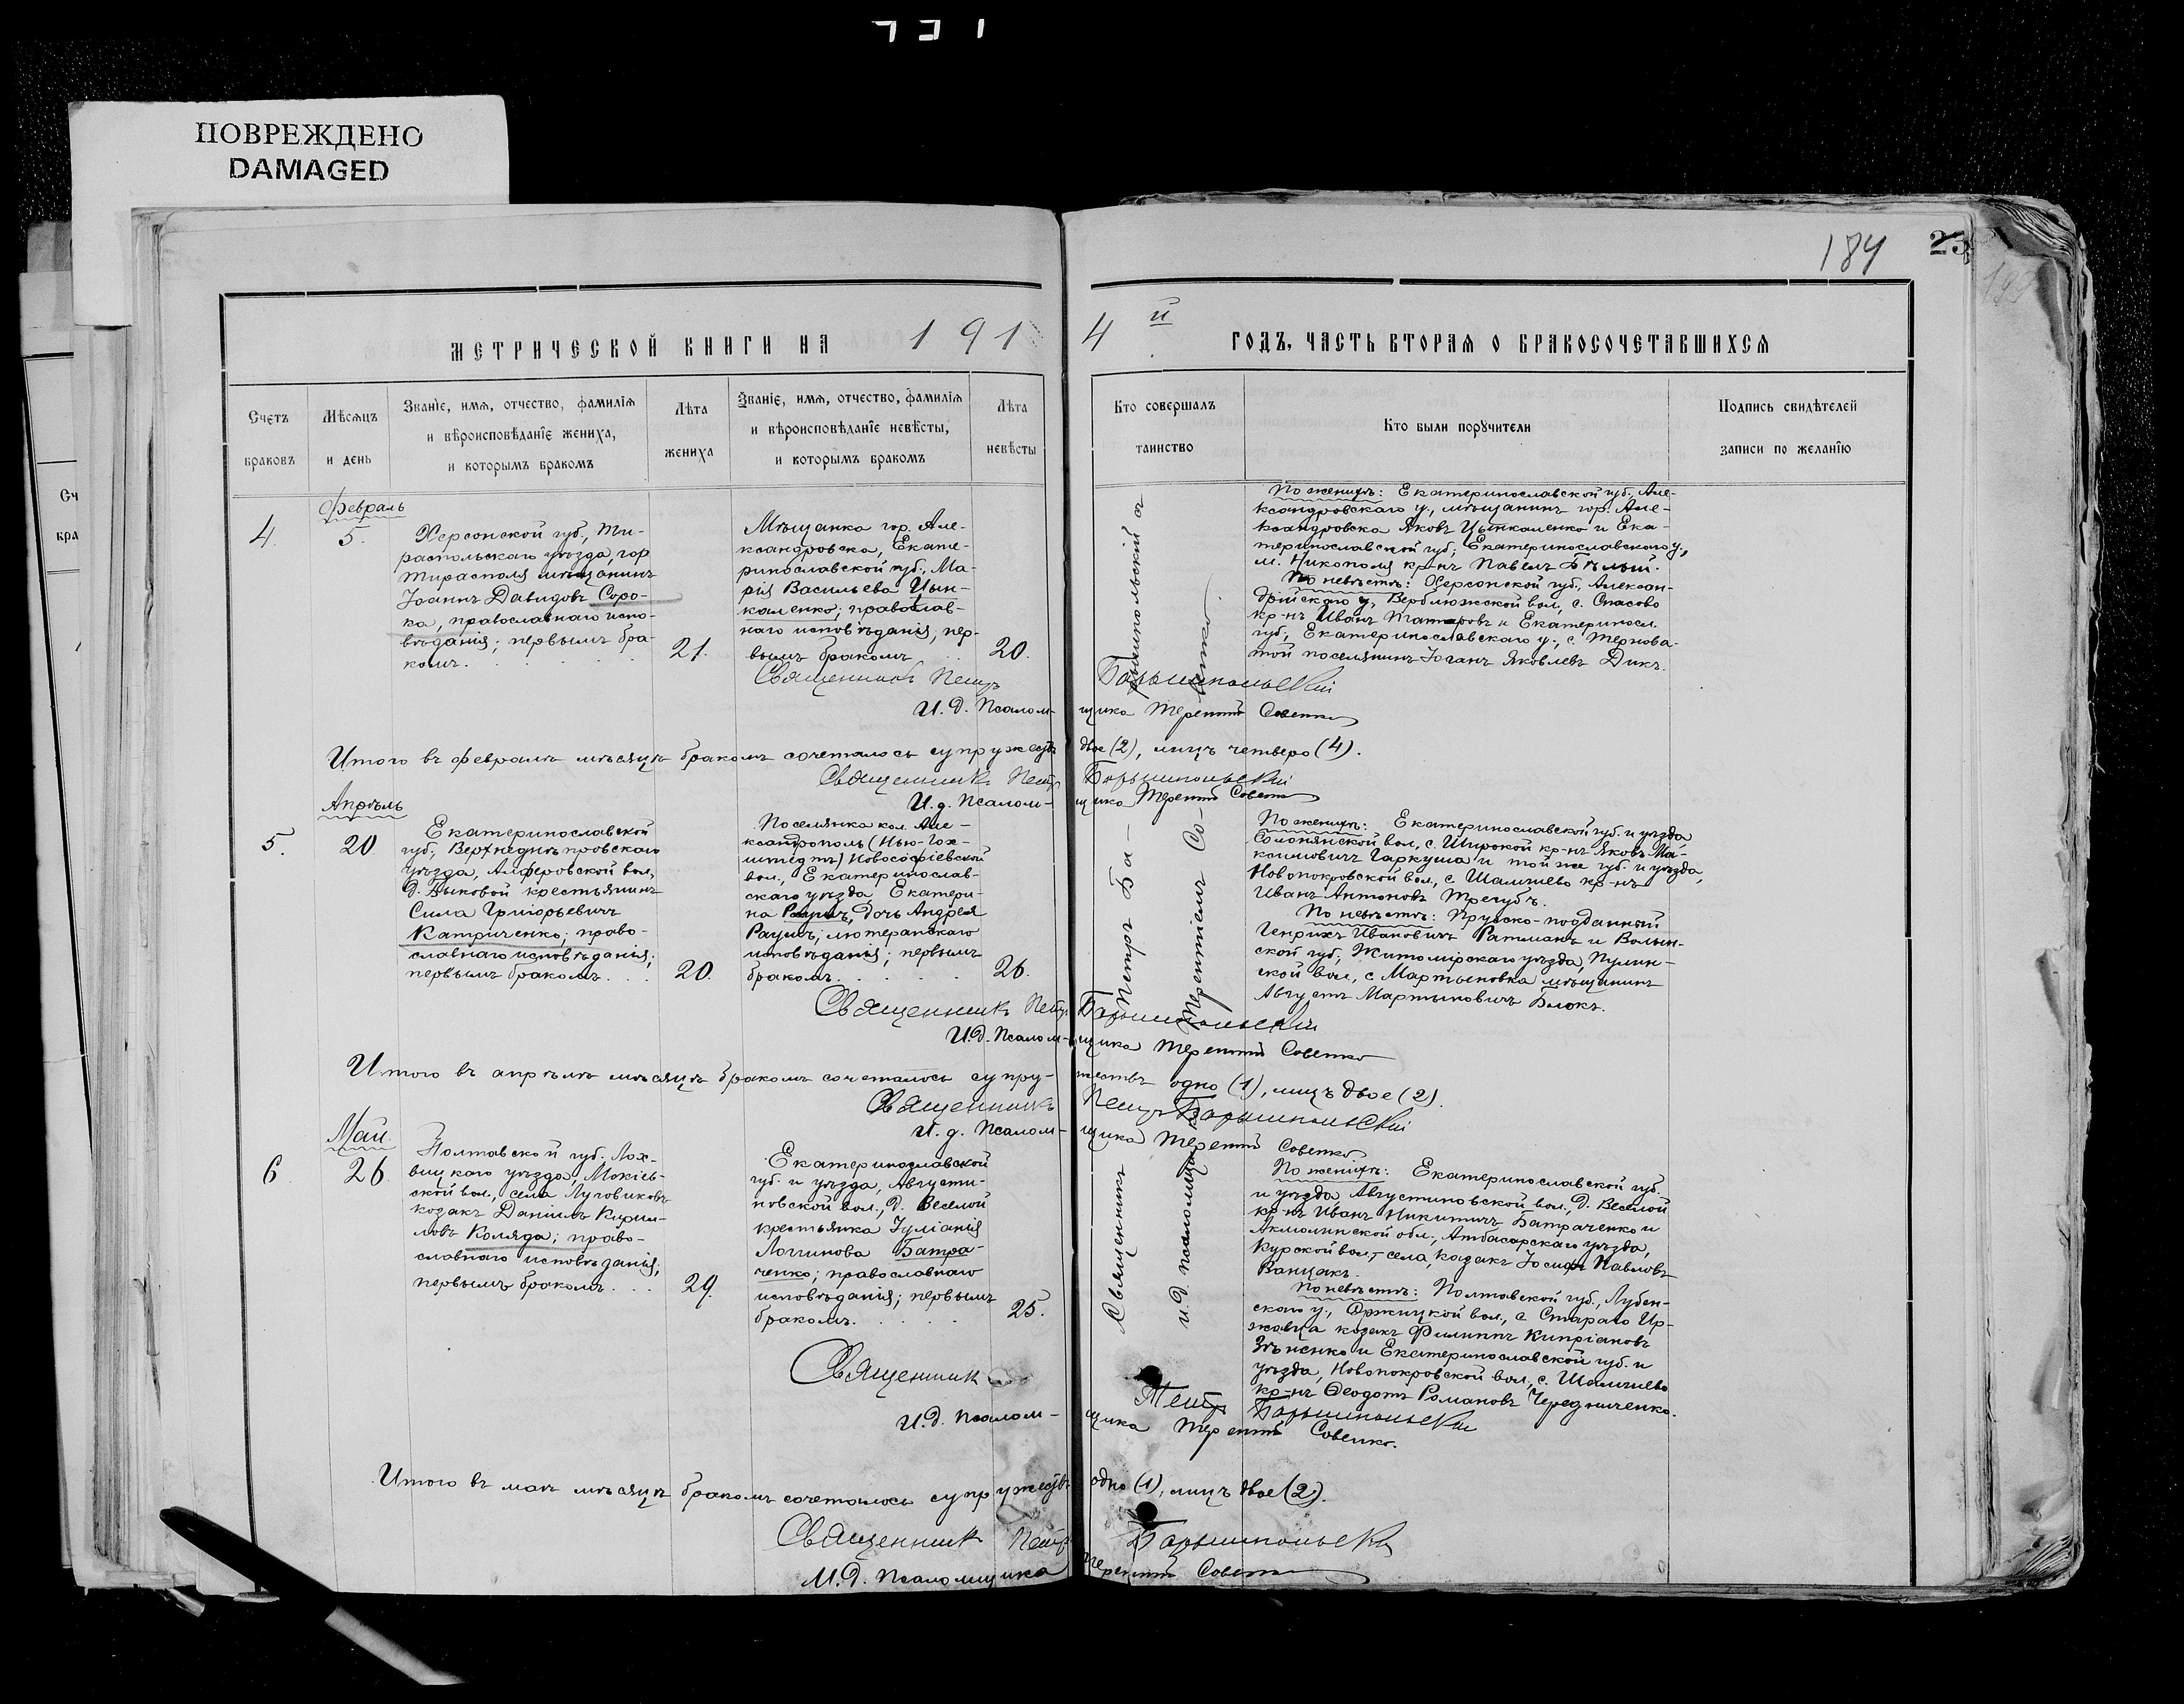 ПОВРЕЖДЕНО
DAMAGED
184
25
МЕТРИЧЕСКОЙ КНИГИ НА 191
4й ГОДЪ, ЧАСТЬ ВТОРАЯ О БРАКОСОЧЕТАВШИХСЯ
Счетъ
браковъ
Мѣсяцъ
и день
Званіе, имя, отчество, фамилія
и вѣроисповѣданіе жениха,
и которымъ бракомъ
Лѣта
жениха
Званіе, имя, отчество, фамилія
и вѣроисповѣданіе невѣсты,
и которымъ бракомъ
Лѣта
невѣсты
Кто совершалъ
таинство
Кто были поручители
Подпись свидѣтелей
записи по желанію
Февраль
4.
5.
Херсонской губ., Ти-
распольскаго уѣзда, гор.
Тирасполя мѣщанинъ
Іоаннъ Давидовъ Соро-
ка, православнаго испо-
вѣданія; первымъ бра-
комъ.
21.
Мѣщанка гор. Але-
ксандровска, Екате-
ринославской губ., Ма-
рія Васильева Цын-
каленко; православ-
наго исповѣданія, пер-
вымъ бракомъ
20.
По женихѣ: Екатеринославской губ., Але-
ксандровскаго у., мѣщанинъ гор. Але-
ксандровска Яковъ Цынкаленко и Ека-
теринославской губ., Екатеринославскаго у.,
м. Никополя кр-нъ Павелъ Бѣлый.
По невѣстѣ: Херсонской губ., Алексан-
дрійскаго у., Верблюжской вол., с. Спасово
кр-нъ Иванъ Татаровъ и Екатериносл.
губ., Екатеринославскаго у., с. Тернова-
той поселянинъ Іоганъ Яковлевъ Дикъ.
Священникъ Петръ Барышпольскій
И. д. Псалом-щика Терентій Совенко
Итого въ февралѣ мѣсяцѣ бракомъ сочеталось супружествъ двое (2), лицъ четверо (4).
Священникъ Петръ Барышпольскій
И. д. Псалом-щика Терентій Совенко
Апрѣль
5.
20.
Екатеринославской
губ., Верхнеднѣпровскаго
уѣзда, Алферовской вол.,
д. Быковой крестьянинъ
Сила Григорьевичъ
Катриченко; право-
славнаго исповѣданія;
первымъ бракомъ.
20.
Поселянка кол. Але-
ксандрополь (Нью-Гох-
штедтъ) Новософіевской
вол., Екатеринослав-
скаго уѣзда Екатери-
на Раушъ, дочь Андрея
Раушъ; лютеранскаго
исповѣданія; первымъ
бракомъ.
26.
Петръ Ба-рышпольскій
Терентіемъ Со-венко
По женихѣ: Екатеринославской губ. и уѣзда,
Солонянской вол., с. Широкой кр-нъ Яковъ Ма-
ксимовичъ Гаркуша и той же губ. и уѣзда,
Новопокровской вол., с. Шалчиево кр-нъ
Иванъ Антоновъ Трегубъ.
По невѣстѣ: Прусско-подданный
Генрихъ Ивановичъ Ратманъ и Волын-
ской губ., Житомірскаго уѣзда, Пулин-
ской вол., с. Мартыновка мѣщанинъ
Августъ Мартыновичъ Блокъ.
Священникъ Петръ Барышпольскій
И. д. Псалом-щика Терентій Совенко
Итого въ апрѣлѣ мѣсяцѣ бракомъ сочеталось супру-жествъ одно (1), лицъ двое (2).
Священникъ Петръ Барышпольскій
И. д. Псалом-щика Терентій Совенко
Май
6
26
Полтавской губ. Лох-
вицкаго уѣзда, Мокіев-
ской вол., села Луговиковъ
козакъ Даніилъ Кирил-
ловъ Коляда; право-
славнаго исповѣданія;
первымъ бракомъ.
29.
Екатеринославской
губ. и уѣзда, Августи-
новской вол., д. Веселой
крестьянка Іуліанія
Логгинова Батра-
ченко; православнаго
исповѣданія; первымъ
бракомъ.
25.
Священникъ
и. д. псаломщика
По женихѣ: Екатеринославской губ.
и уѣзда, Августиновской вол., д. Веселой
кр-нъ Иванъ Никитичъ Батраченко и
Акмолинской обл., Атбасарскаго уѣзда,
Курской вол., села, козакъ Іосифъ Павловъ
Ванжакъ.
По невѣстѣ: Полтавской губ., Лубен-
скаго у., Оржицкой вол., с. Стараго Ир-
жавца козакъ Филиппъ Кипріановъ
Зѣненко и Екатеринославской губ. и
уѣзда, Новопокровской вол., с. Шалчиево
кр-нъ Ѳеодотъ Романовъ Чередниченко.
Священникъ Петръ Барышпольскій
И. д. Псалом-щика Терентій Совенко.
Итого въ маѣ мѣсяцѣ бракомъ сочеталось супружествъ одно (1), лицъ двое (2).
Священникъ Петръ Барышпольскій
И. д. Псаломщика Терентій Совенко